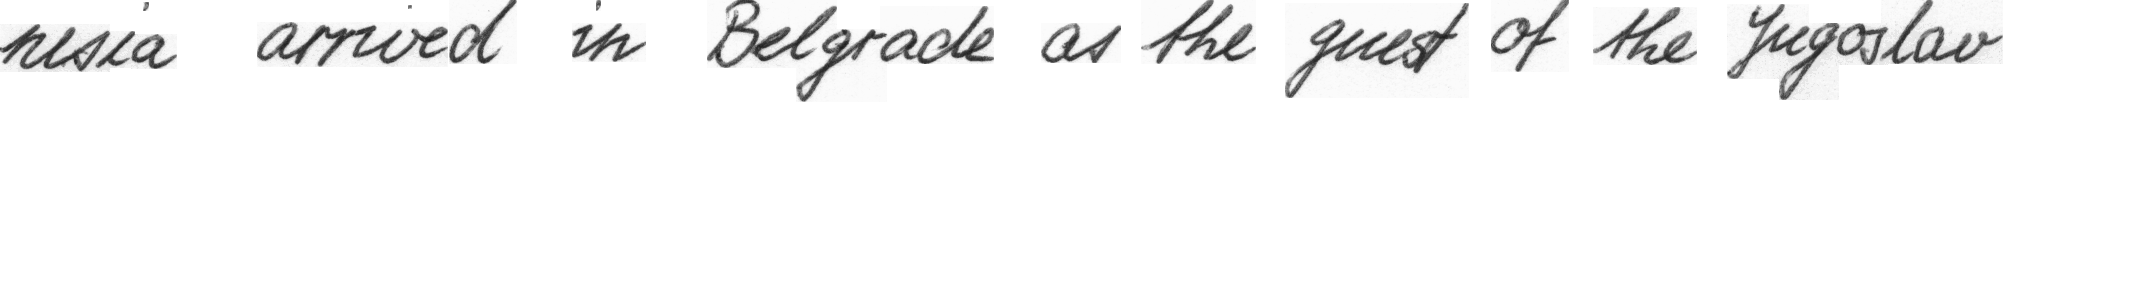 nesia arrived in Belgrade as the guest of the Yugoslav